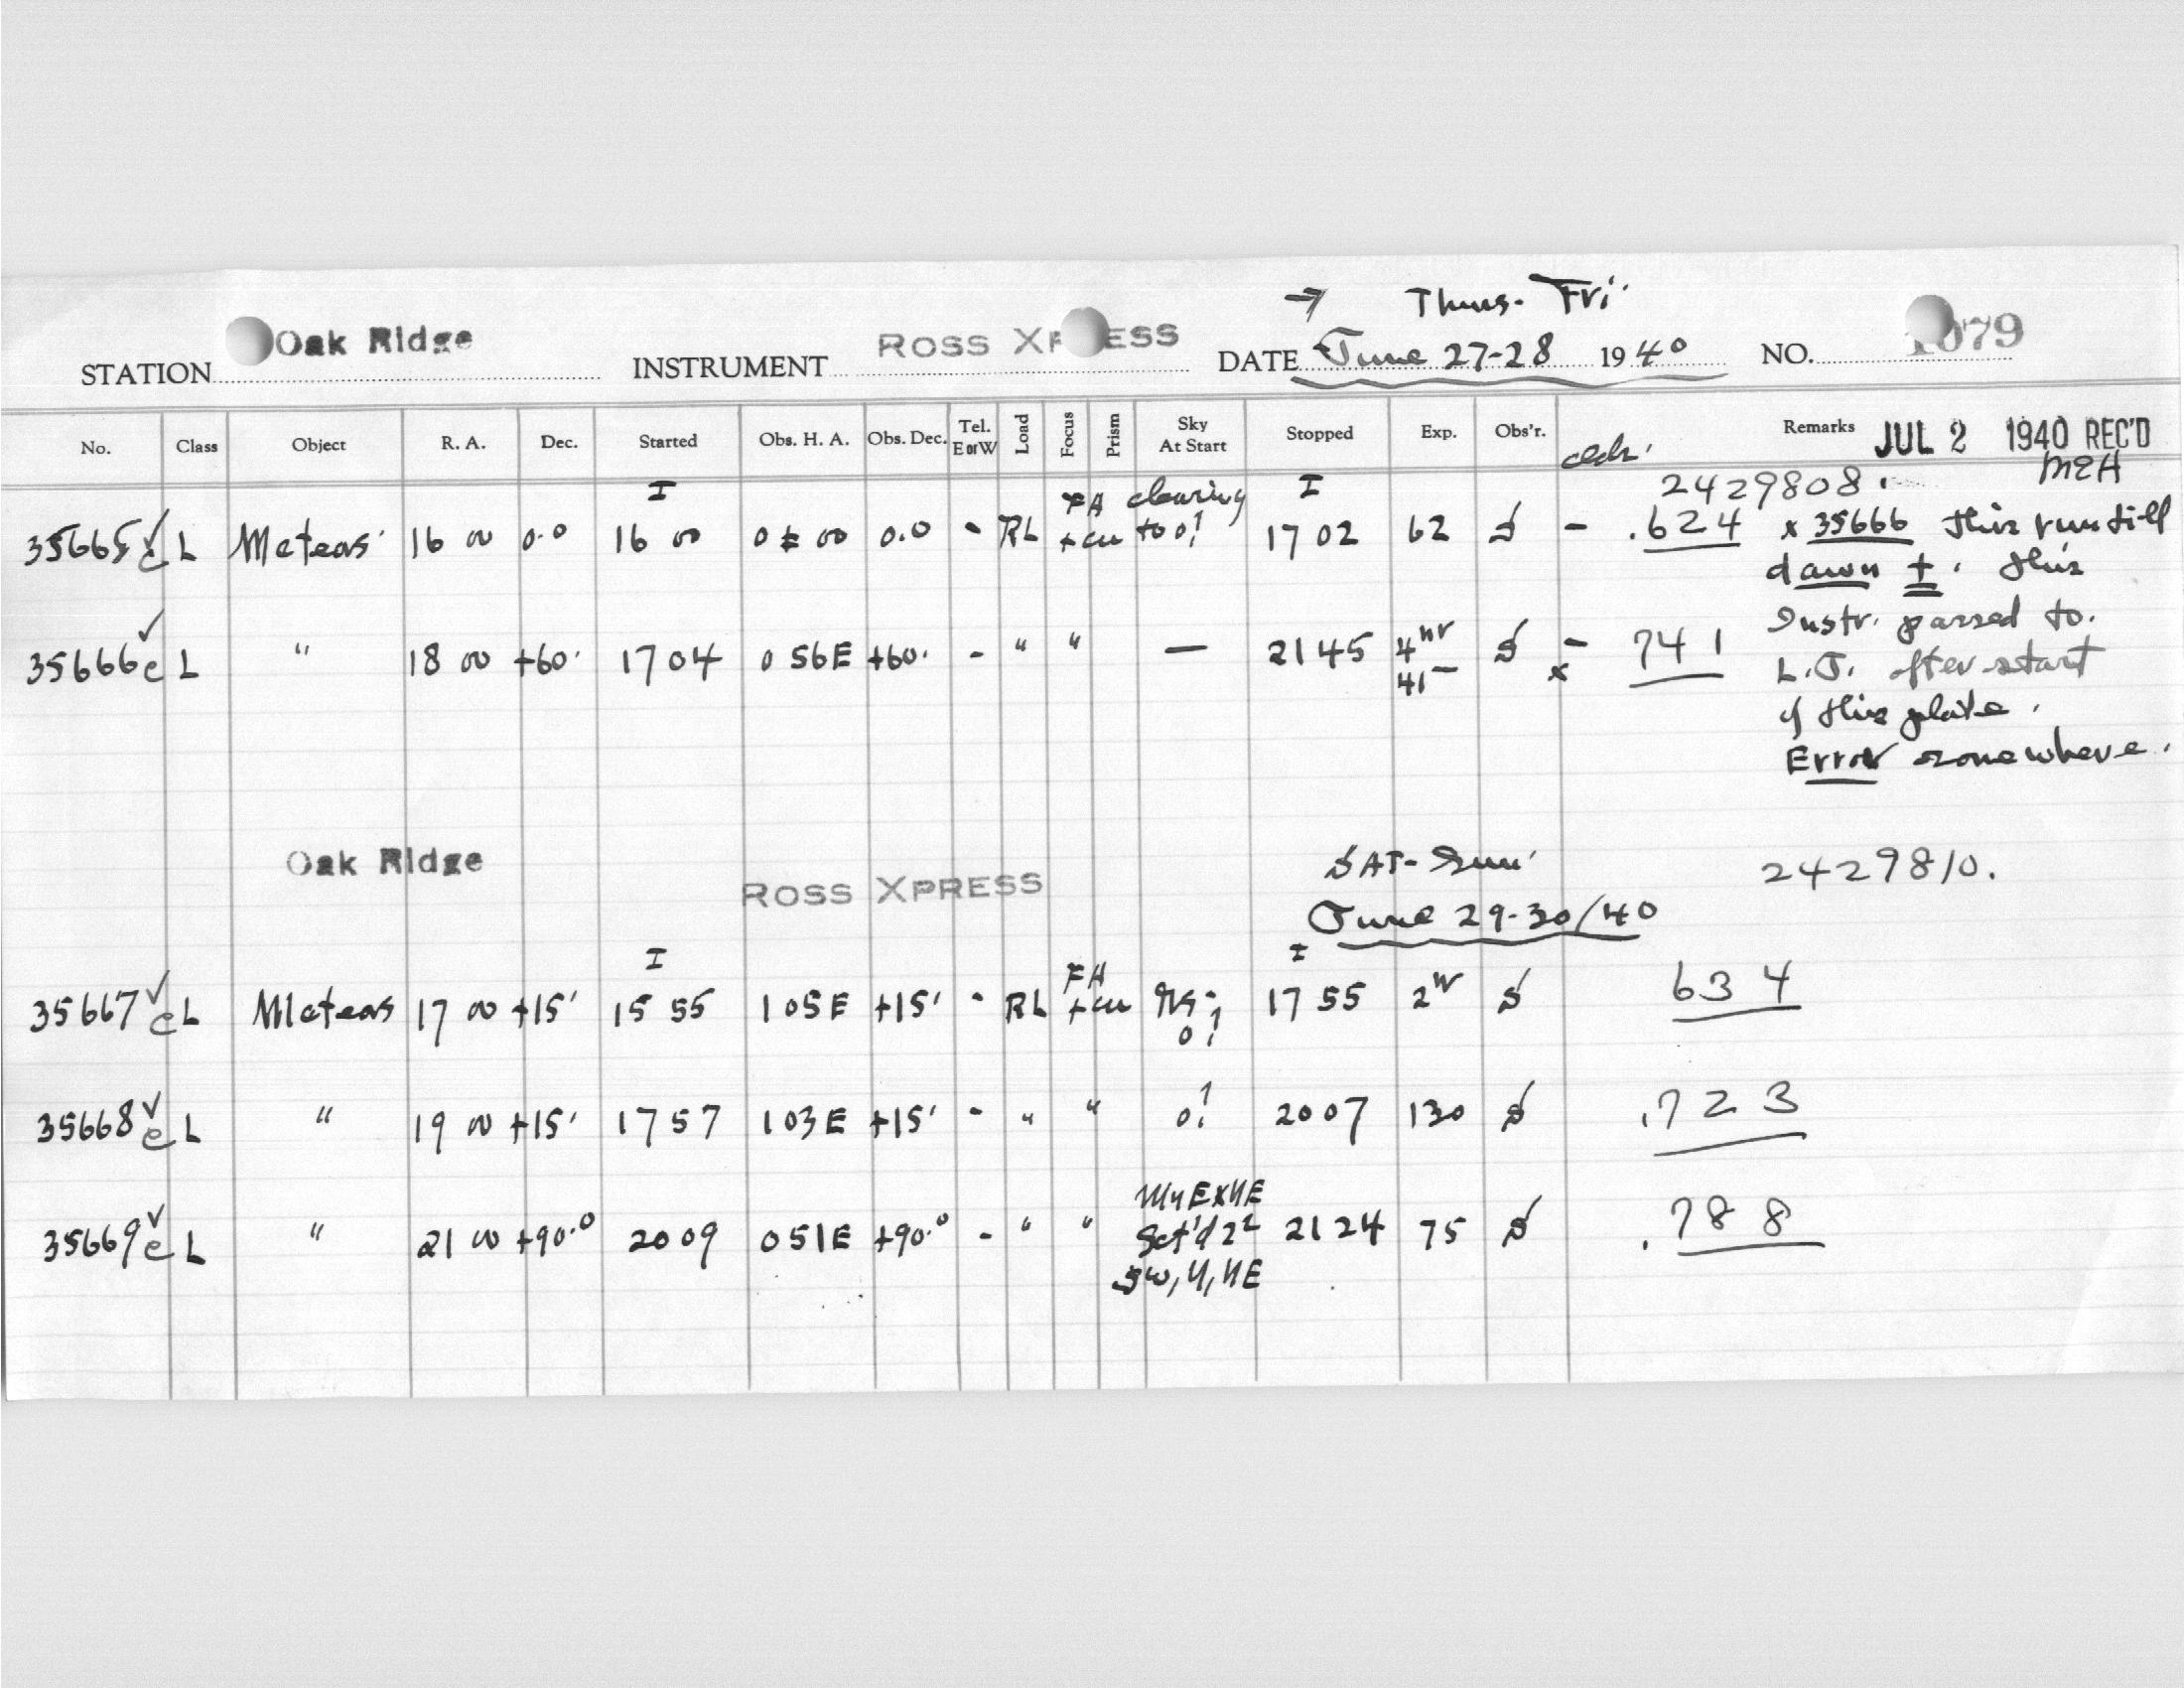 → Thurs. Fri.
STATION Oak Ridge INSTRUMENT ROSS XPRESS DATE June 27-28 1940 NO. 1079
No. Class Object R. A. Dec. Started Obs. H. A. Obs. Dec. Tel. E or W Load Focus Prism Sky At Start Stopped Exp. Obs'r. Remarks JUL 2 1940 REC'D
2429808. MEH
35665 c L Meteors 16 00 0.0 I 16 00 0 ± 00 0.0 - RL FA + cu clearing to 0? I 17 02 62 S - .624 x 35666 this run till
dawn ±. This
35666 c L " 18 00 +60. 17 04 0 56E +60. - " " — 21 45 4hr 41- S - x 741 Instr. passed to.
L.J. after start
of this plate.
Error somewhere.
Oak Ridge ROSS XPRESS SAT- Sun. 2429810.
June 29-30/40
35667 c L Meteors 17 00 +15. I 15 55 1 05E +15. - RL FA + cu 0? I 17 55 2hr S 634
35668 c L " 19 00 +15. 17 57 1 03E +15. - " " 0? 20 07 130 S .723
35669 c L " 21 00 +90.0 20 09 0 51E +90.0 - " " Sct'd SW, N, NE 21 24 75 S .788